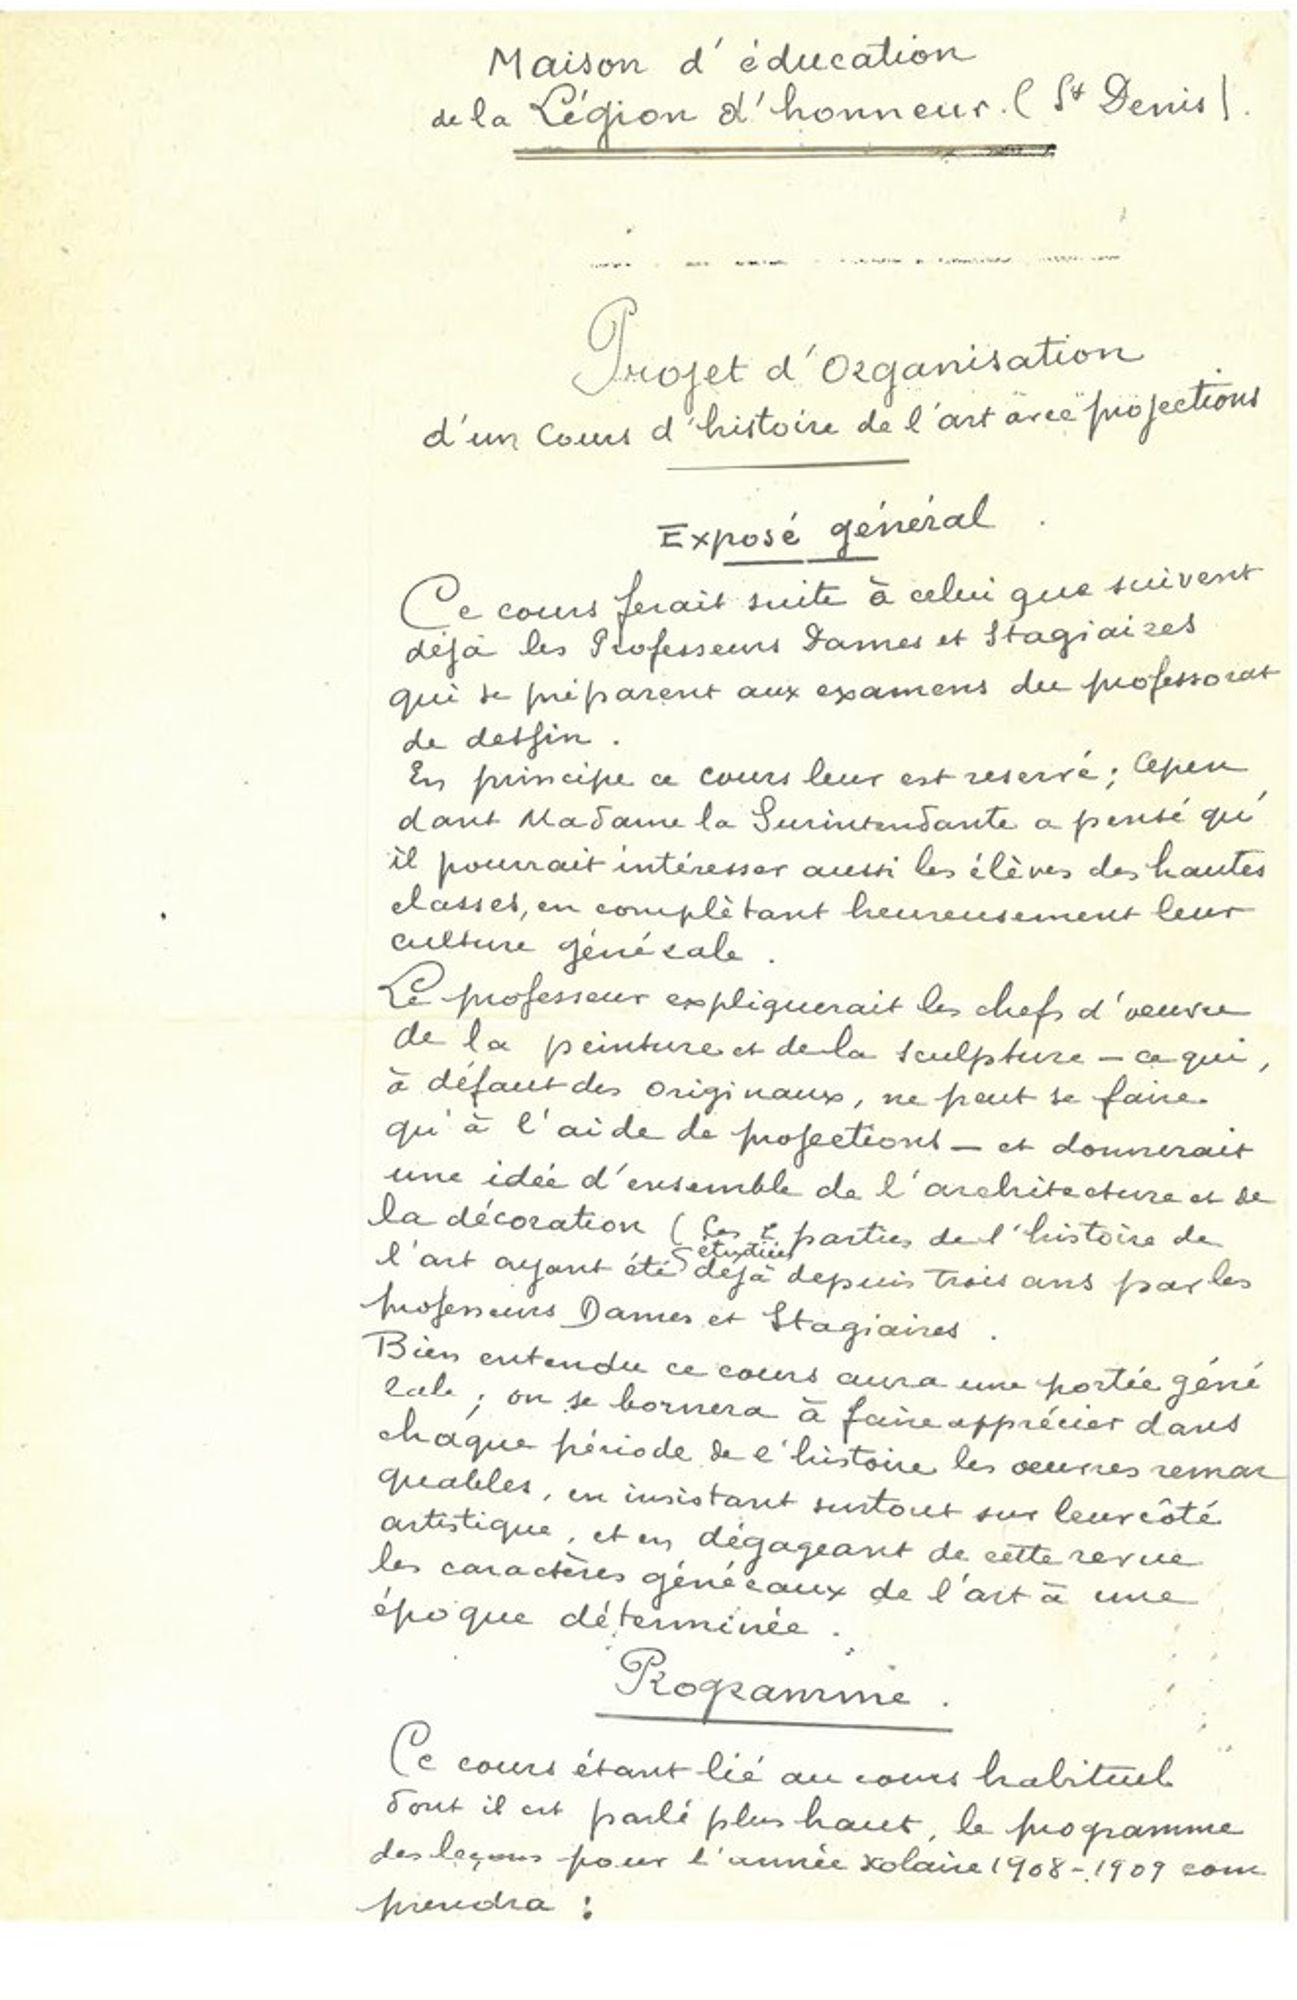 Maison d'éducation
de la Légion d'honneur. (St Denis).
Projet d'Organisation
d'un Cours d'histoire de l'art avec projections
Exposé général.
Ce cours ferait suite à celui que suivent
déjà les Professeurs Dames et Stagiaires
qui se préparent aux examens du professorat
de dessin.
En principe ce cours leur est reservé; Cepen
dant Madame la Surintendante a pensé qu'
il pourrait intéresser aussi les élèves des hautes
classes, en complètant heureusement leur
culture générale.
Le professeur expliquerait les chefs d'oeuvre
de la peinture et de la sculpture – ce qui,
à défaut des originaux, ne peut se faire
qu'à l'aide de projections – et donnerait
une idée d'ensemble de l'architecture et de
la décoration (Ces 2 parties de l'histoire de
l'art ayant été étudiées déjà depuis trois ans par les
professeurs Dames et Stagiaires.
Bien entendu ce cours aura une portée géné
rale; on se bornera à faire apprécier dans
chaque période de l'histoire les oeuvres remar
quables, en insistant surtout sur leur côté
artistique, et en dégageant de cette revue
les caractères généraux de l'art à une
époque déterminée.
Programme.
Ce cours étant lié au cours habituel
dont il est parlé plus haut, le programme
des leçons pour l'année scolaire 1908-1909 com
prendra :